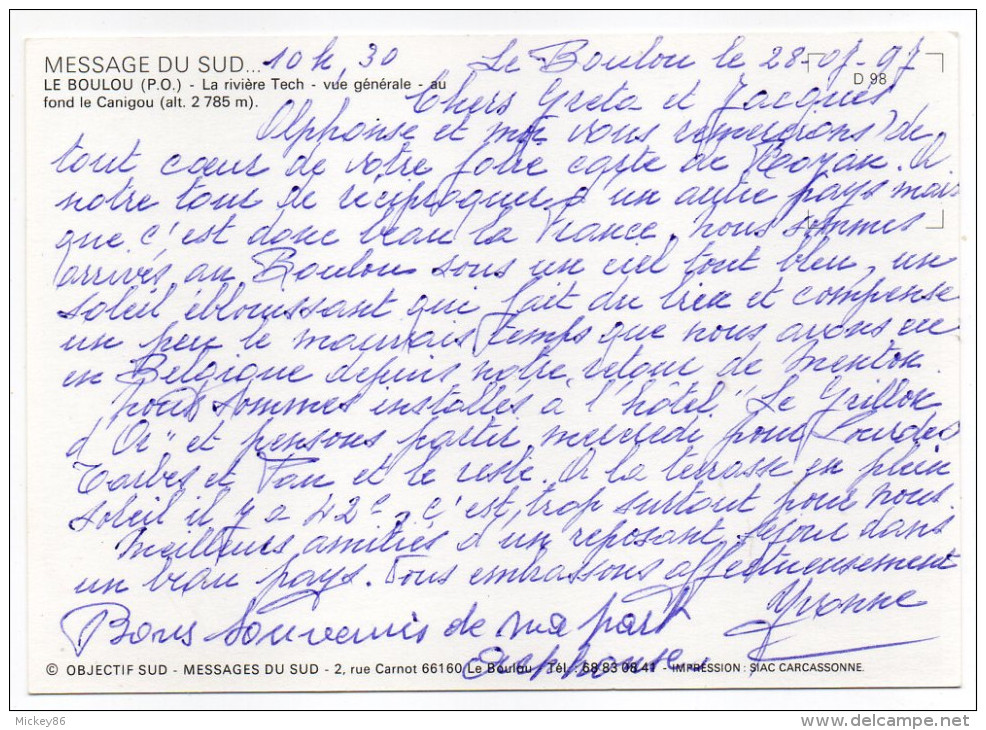 MESSAGE DU SUD... 10h,30 Le Boulou le 28-07-97
LE BOULOU (P.O.) - La rivière Tech - vue générale - au
fond le Canigou (alt. 2 785 m).
D 98
Chers Greta et Jacques
Alphonse et moi vous remercions de
tout cœur de votre jolie carte de Royan. A
notre tour de réciproquer d'un autre pays mais
que c'est donc beau la France. Nous sommes
arrivés au Boulou sous un ciel tout bleu, un
soleil éblouissant qui fait du bien et compense
un peu le mauvais temps que nous avons eu
en Belgique depuis notre retour de Menton.
Nous sommes installés à l'hôtel "Le Grillon
d'Or" et pensons partir mercredi pour Lourdes
Tarbes et Pau et le reste. A la terrasse en plein
soleil il y a 42°, c'est trop surtout pour nous.
Meilleures amitiés d'un reposant séjour dans
un beau pays. Vous embrassons affectueusement
Yvonne
Bons souvenirs de ma part
Alphonse
© OBJECTIF SUD - MESSAGES DU SUD - 2, rue Carnot 66160 Le Boulou - Tél. : 68 83 08 41 - IMPRESSION : SIAC CARCASSONNE.
Mickey86
www.delcampe.net